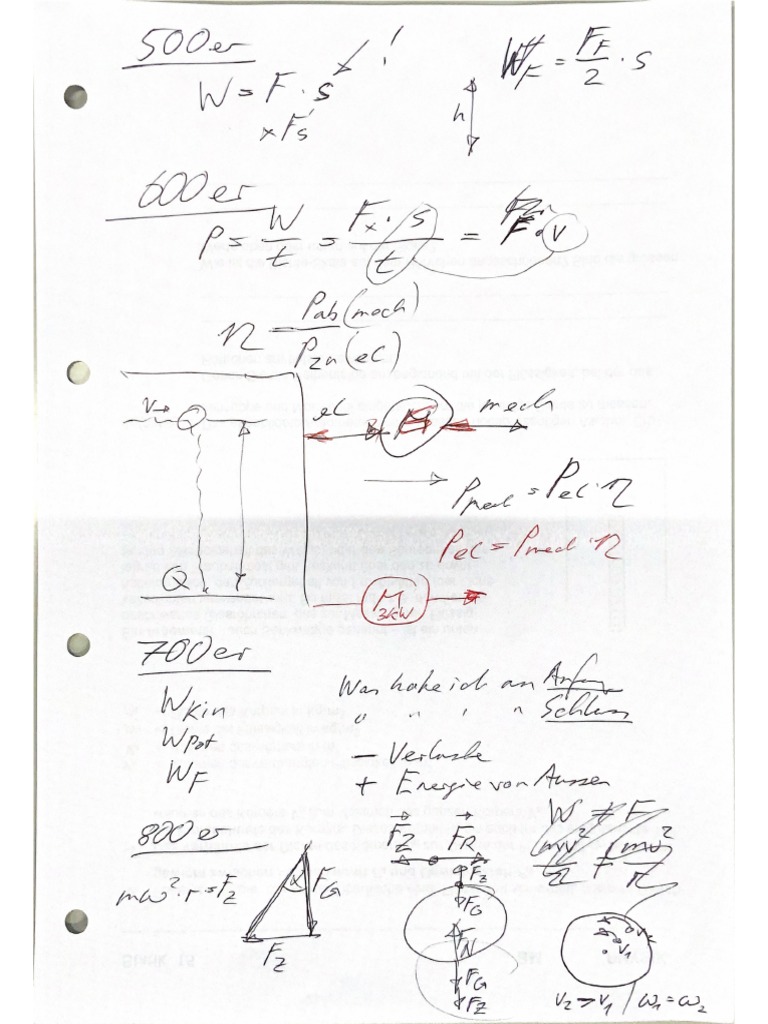 500er
W = F · s !
x Fs
W_F = F_F/2 · s
h
600er
P = W/t = Fx · s/t = F · v
η = Pab (mech)/Pzu (el)
v
el M mech
Pmech = Pel · η
Pel = Pmech · η
M 3kW
700er
Wkin
Wpot
W_F
Was habe ich am Anfang
" " " " Schluss
– Verluste
+ Energie von Aussen
800er
mω² · r = Fz
α
F_G
Fz
Fz F_R
Fz
F_G
F_N
F_G
Fz
W ≠ F
mv²/2 F = mv²/r
v2
v1
v2 > v1 / ω1 = ω2